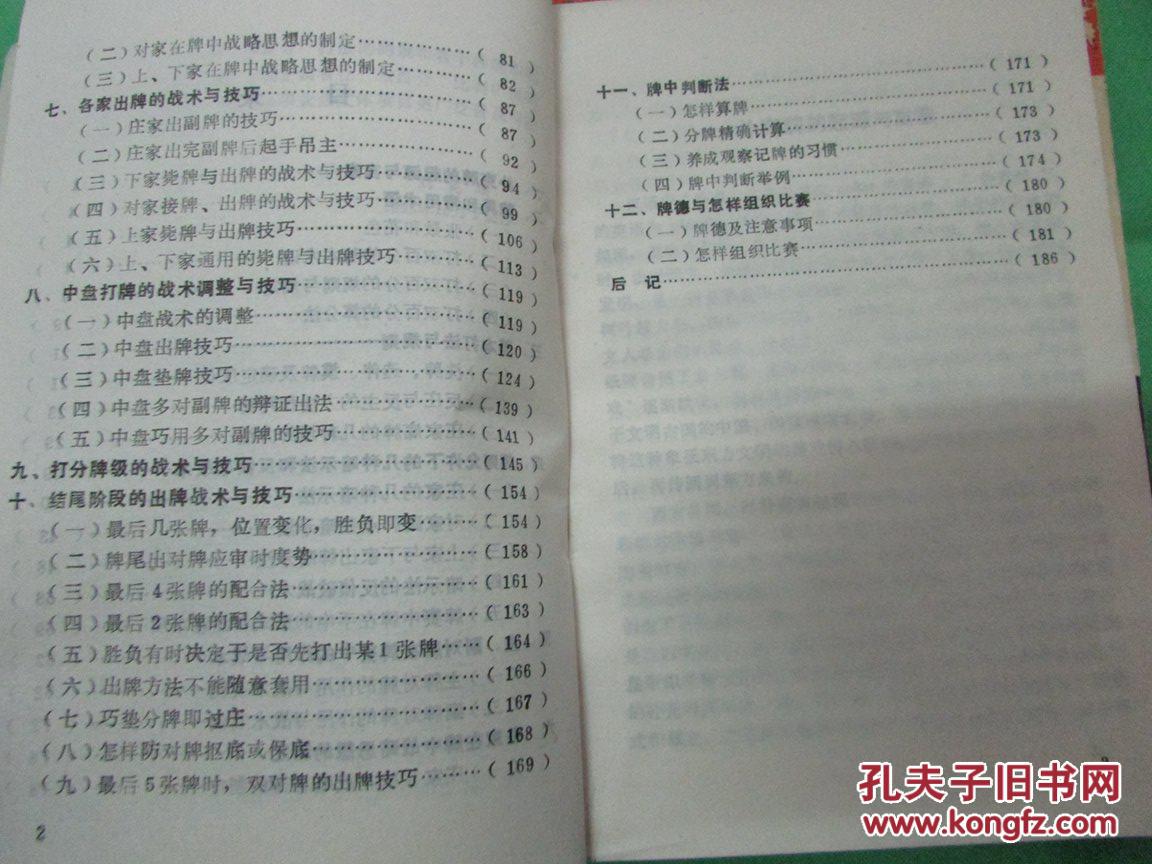 （二）对家在牌中战略思想的制定…………………（ 81 ）
（三）上、下家在牌中战略思想的制定……………（ 82 ）
七、各家出牌的战术与技巧…………………………（ 87 ）
（一）庄家出副牌的技巧……………………………（ 87 ）
（二）庄家出完副牌后起手吊主……………………（ 92 ）
（三）下家毙牌与出牌的战术与技巧………………（ 94 ）
（四）对家接牌、出牌的战术与技巧………………（ 99 ）
（五）上家毙牌与出牌技巧…………………………（ 106 ）
（六）上、下家通用的毙牌与出牌技巧……………（ 113 ）
八、中盘打牌的战术调整与技巧……………………（ 119 ）
（一）中盘战术的调整………………………………（ 119 ）
（二）中盘出牌技巧…………………………………（ 120 ）
（三）中盘垫牌技巧…………………………………（ 124 ）
（四）中盘多对副牌的辩证出法……………………（ 139 ）
（五）中盘巧用多对副牌的技巧……………………（ 141 ）
九、打分牌级的战术与技巧…………………………（ 145 ）
十、结尾阶段的出牌战术与技巧……………………（ 154 ）
（一）最后几张牌，位置变化，胜负即变…………（ 154 ）
（二）牌尾出对牌应审时度势………………………（ 158 ）
（三）最后4张牌的配合法…………………………（ 161 ）
（四）最后2张牌的配合法…………………………（ 163 ）
（五）胜负有时决定于是否先打出某1张牌………（ 164 ）
（六）出牌方法不能随意套用………………………（ 166 ）
（七）巧垫分牌即过庄………………………………（ 167 ）
（八）怎样防对牌抠底或保底………………………（ 168 ）
（九）最后5张牌时，双对牌的出牌技巧…………（ 169 ）
2
十一、牌中判断法……………………………………（ 171 ）
（一）怎样算牌………………………………………（ 171 ）
（二）分牌精确计算…………………………………（ 173 ）
（三）养成观察记牌的习惯…………………………（ 173 ）
（四）牌中判断举例…………………………………（ 174 ）
十二、牌德与怎样组织比赛…………………………（ 180 ）
（一）牌德及注意事项………………………………（ 180 ）
（二）怎样组织比赛…………………………………（ 181 ）
后　记…………………………………………………（ 186 ）
孔夫子旧书网
www.kongfz.com